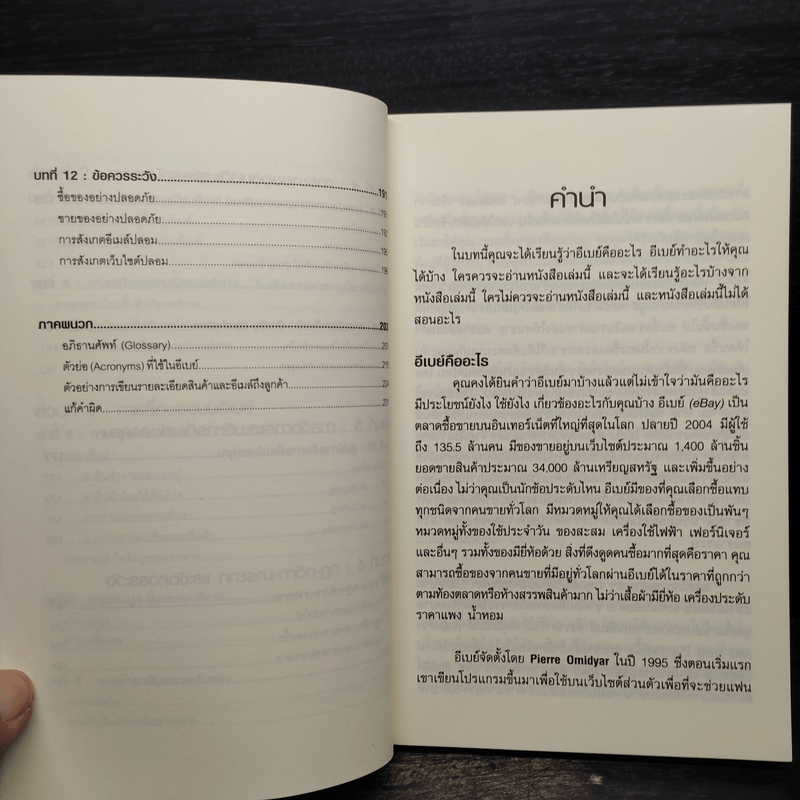 บทที่ 12 : ข้อควรระวัง 191
ซื้อของอย่างปลอดภัย
ขายของอย่างปลอดภัย
การสังเกตอีเมล์ปลอม
การสังเกตเว็บไซต์ปลอม
ภาคผนวก 203
อภิธานศัพท์ (Glossary)
ตัวย่อ (Acronyms) ที่ใช้ในอีเบย์
ตัวอย่างการเขียนรายละเอียดสินค้าและอีเมล์ถึงลูกค้า
แก้คำผิด
คำนำ
ในบทนี้คุณจะได้เรียนรู้ว่าอีเบย์คืออะไร อีเบย์ทำอะไรให้คุณ
ได้บ้าง ใครควรจะอ่านหนังสือเล่มนี้ และจะได้เรียนรู้อะไรบ้างจาก
หนังสือเล่มนี้ ใครไม่ควรจะอ่านหนังสือเล่มนี้ และหนังสือเล่มนี้ไม่ได้
สอนอะไร
อีเบย์คืออะไร
คุณคงได้ยินคำว่าอีเบย์มาบ้างแล้วแต่ไม่เข้าใจว่ามันคืออะไร
มีประโยชน์ยังไง ใช้ยังไง เกี่ยวข้องอะไรกับคุณบ้าง อีเบย์ (eBay) เป็น
ตลาดซื้อขายบนอินเทอร์เน็ตที่ใหญ่ที่สุดในโลก ปลายปี 2004 มีผู้ใช้
ถึง 135.5 ล้านคน มีของขายอยู่บนเว็บไซต์ประมาณ 1,400 ล้านชิ้น
ยอดขายสินค้าประมาณ 34,000 ล้านเหรียญสหรัฐ และเพิ่มขึ้นอย่าง
ต่อเนื่อง ไม่ว่าคุณเป็นนักช้อประดับไหน อีเบย์มีของที่คุณเลือกซื้อแทบ
ทุกชนิดจากคนขายทั่วโลก มีหมวดหมู่ให้คุณได้เลือกซื้อของเป็นพันๆ
หมวดหมู่ทั้งของใช้ประจำวัน ของสะสม เครื่องใช้ไฟฟ้า เฟอร์นิเจอร์
และอื่นๆ รวมทั้งของมียี่ห้อด้วย สิ่งที่ดึงดูดคนซื้อมากที่สุดคือราคา คุณ
สามารถซื้อของจากคนขายที่มีอยู่ทั่วโลกผ่านอีเบย์ได้ในราคาที่ถูกกว่า
ตามท้องตลาดหรือห้างสรรพสินค้ามาก ไม่ว่าเสื้อผ้ามียี่ห้อ เครื่องประดับ
ราคาแพง น้ำหอม
อีเบย์จัดตั้งโดย Pierre Omidyar ในปี 1995 ซึ่งตอนเริ่มแรก
เขาเขียนโปรแกรมขึ้นมาเพื่อใช้บนเว็บไซต์ส่วนตัวเพื่อที่จะช่วยแฟน